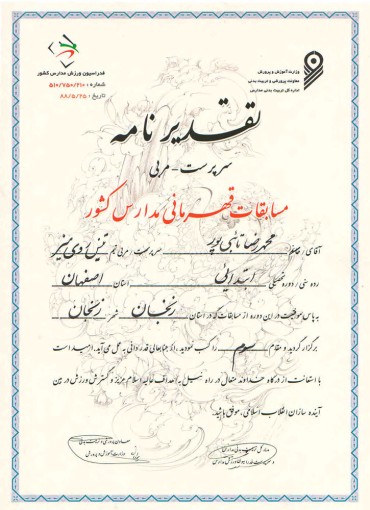 وزارت آموزش و پرورش
معاونت پرورشی و تربیت بدنی
اداره کل تربیت بدنی مدارس
فدراسیون ورزش مدارس کشور
شماره : ۵۱۰/۷۵۰/۲۱۰
تاریخ : ۸۸/۵/۲۵
تقدیر نامه
سرپرست - مربی
مسابقات قهرمانی مدارس کشور
آقای / خانم محمدرضا تائبی پور سرپرست / مربی تیم تنیس روی میز
رده سنی / دوره تحصیلی ابتدایی استان اصفهان
به پاس موفقیت در این دوره از مسابقات که در استان زنجان شهر زنجان
برگزار گردید و مقام سوم را کسب نمودید ، از جنابعالی قدردانی به عمل می آید . امید است
با استعانت از درگاه خداوند متعال در راه نیل به اهداف عالیه اسلام عزیز و گسترش ورزش در بین
آینده سازان انقلاب اسلامی ، موفق باشید .